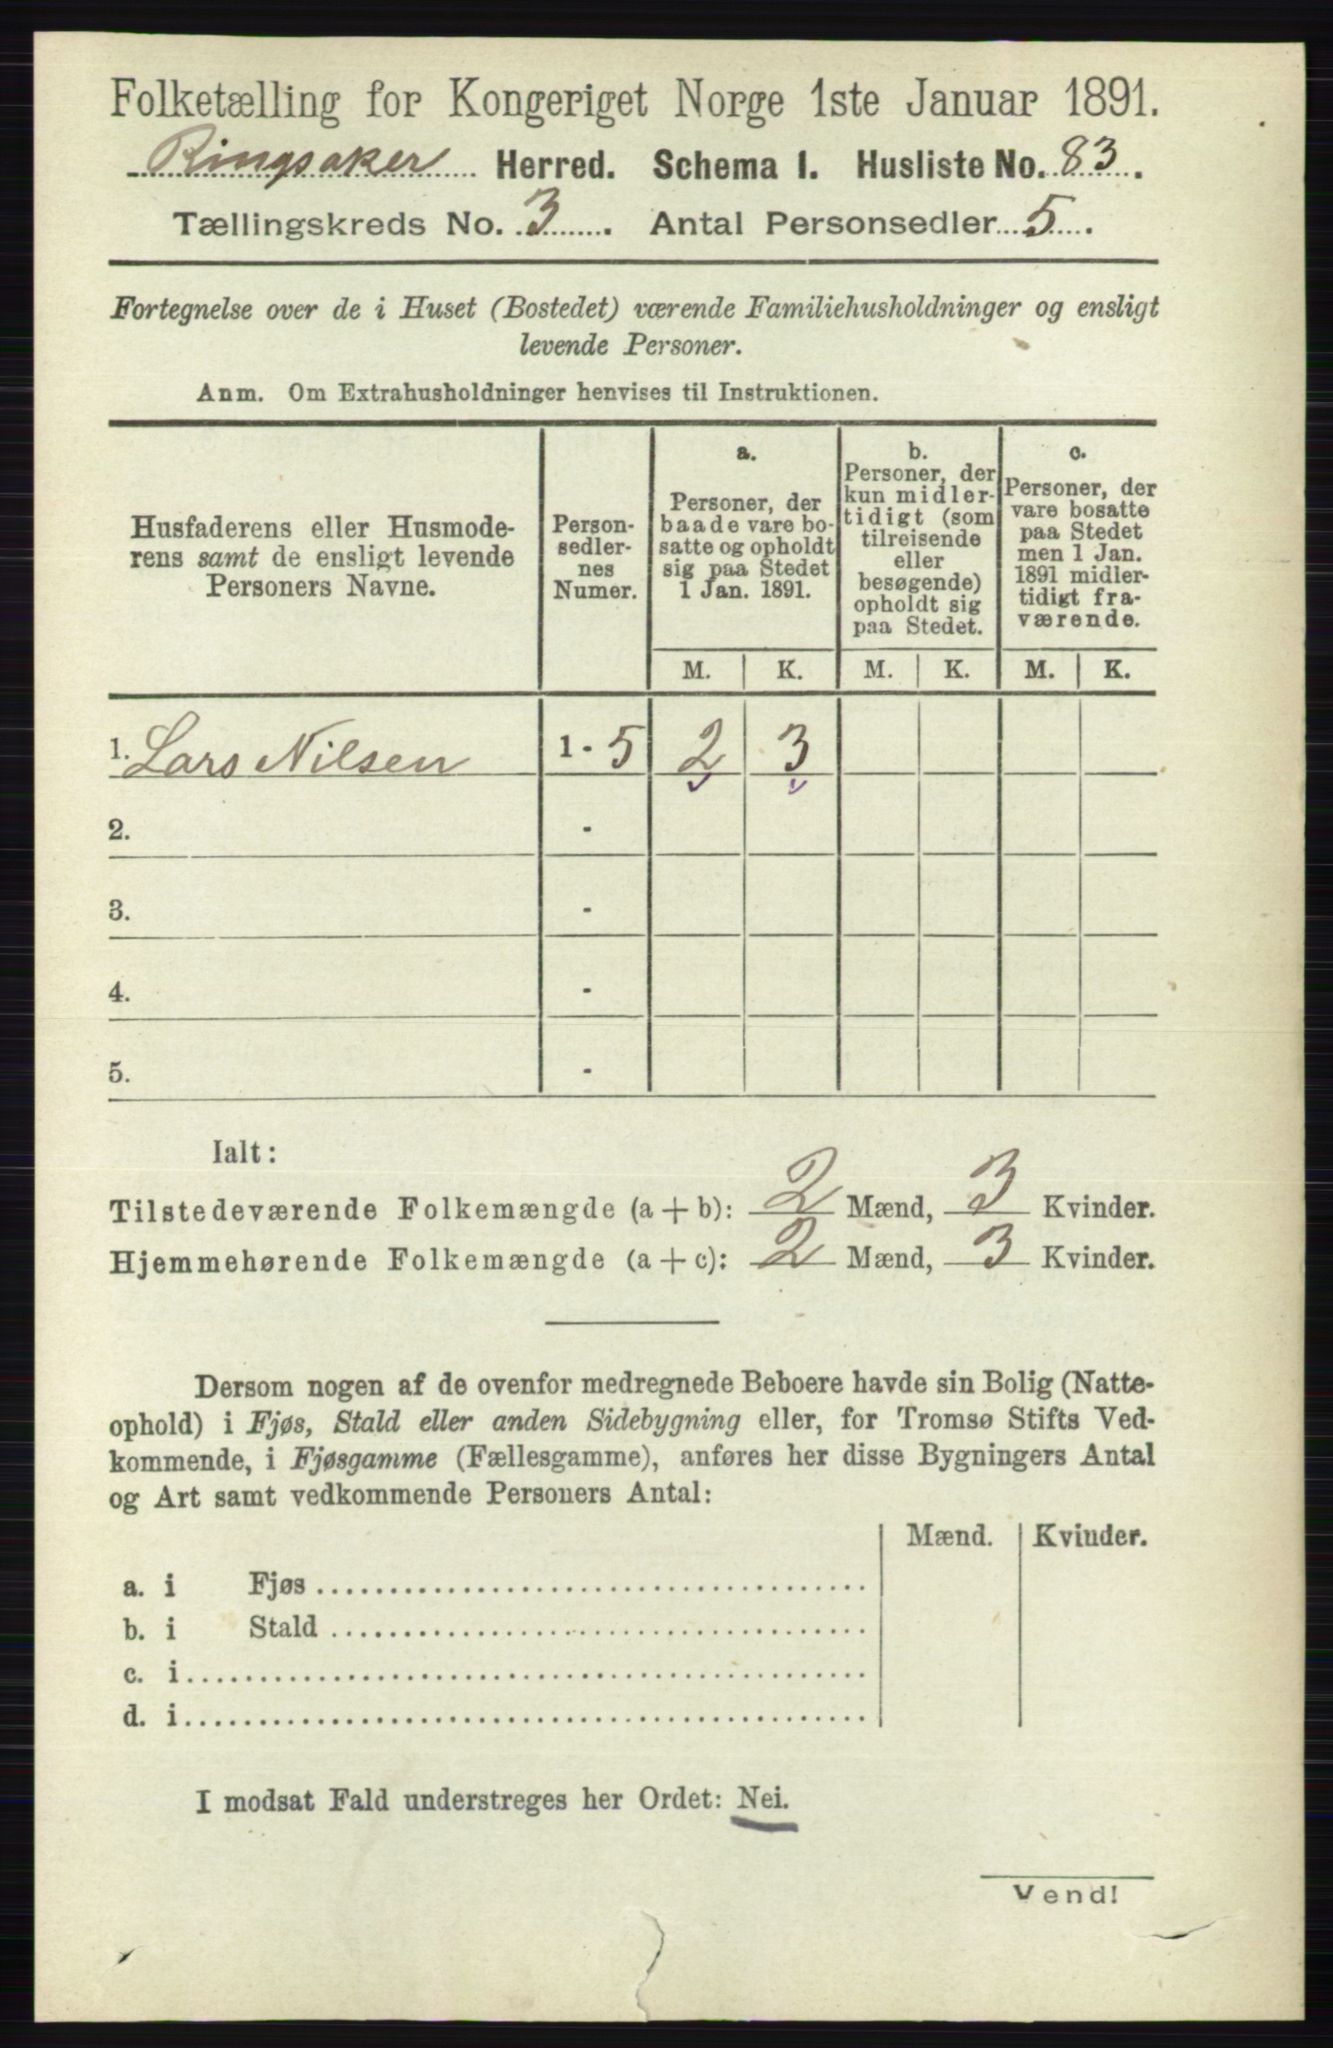 Folketælling for Kongeriget Norge 1ste Januar 1891.
Ringsaker Herred. Schema I. Husliste No. 83.
Tællingskreds No. 3. Antal Personsedler 5.
Fortegnelse over de i Huset (Bostedet) værende Familiehusholdninger og ensligt
levende Personer.
Anm. Om Extrahusholdninger henvises til Instruktionen.
Husfaderens eller Husmode-
rens samt de ensligt levende
Personers Navne.
Person-
sedler-
nes
Numer.
a.
Personer, der
baade vare bo-
satte og opholdt
sig paa Stedet
1 Jan. 1891.
b.
Personer, der
kun midler-
tidigt (som
tilreisende
eller
besøgende)
opholdt sig
paa Stedet.
c.
Personer, der
vare bosatte
paa Stedet
men 1 Jan.
1891 midler-
tidigt fra-
værende.
M. K. M. K. M. K.
1. Lars Nilsen 1 - 5 2 3
2. -
3. -
4. -
5. -
Ialt:
Tilstedeværende Folkemængde (a + b): 2 Mænd, 3 Kvinder.
Hjemmehørende Folkemængde (a + c): 2 Mænd, 3 Kvinder.
Dersom nogen af de ovenfor medregnede Beboere havde sin Bolig (Natte-
ophold) i Fjøs, Stald eller anden Sidebygning eller, for Tromsø Stifts Ved-
kommende, i Fjøsgamme (Fællesgamme), anføres her disse Bygningers Antal
og Art samt vedkommende Personers Antal:
Mænd. Kvinder.
a. i Fjøs
b. i Stald
c. i
d. i
I modsat Fald understreges her Ordet: Nei.
Vend!